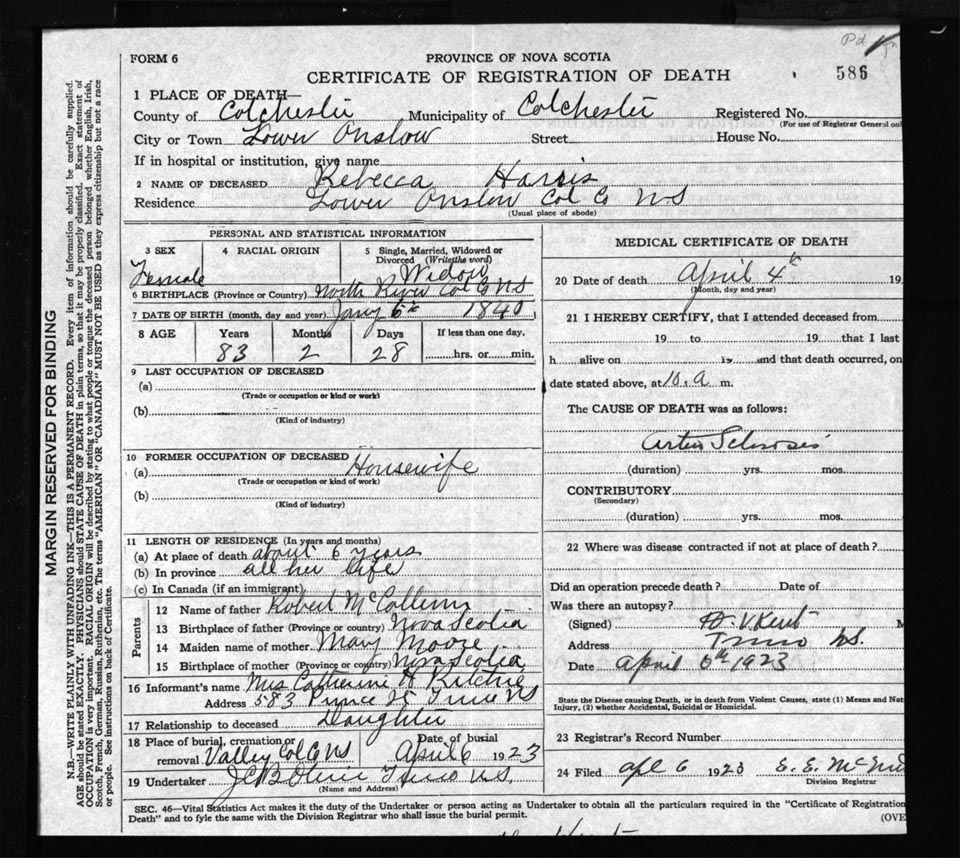 Pd
FORM 6
PROVINCE OF NOVA SCOTIA
CERTIFICATE OF REGISTRATION OF DEATH
586
1 PLACE OF DEATH—
County of Colchester Municipality of Colchester Registered No.
(For use of Registrar General on
City or Town Lower Onslow Street House No.
If in hospital or institution, give name
2 NAME OF DECEASED Rebecca Harris
Residence Lower Onslow Col Co NS
(Usual place of abode)
PERSONAL AND STATISTICAL INFORMATION
3 SEX 4 RACIAL ORIGIN 5 Single, Married, Widowed or Divorced (Write the word)
Female Widow
6 BIRTHPLACE (Province or Country) North River Col Co NS
7 DATE OF BIRTH (month, day and year) Jany 6th 1840
8 AGE Years Months Days If less than one day,
83 2 28 hrs. or min.
9 LAST OCCUPATION OF DECEASED
(a)
(Trade or occupation or kind or work)
(b)
(Kind of industry)
10 FORMER OCCUPATION OF DECEASED
(a) Housewife
(Trade or occupation or kind of work)
(b)
(Kind of industry)
11 LENGTH OF RESIDENCE (In years and months)
(a) At place of death about 6 years
(b) In province all her life
(c) In Canada (if an immigrant)
Parents
12 Name of father Robert McCallum
13 Birthplace of father (Province or country) Nova Scotia
14 Maiden name of mother Mary Moore
15 Birthplace of mother (Province or country) Nova Scotia
16 Informant's name Mrs Catherine H Ritchie
Address 583 Prince St Truro NS
17 Relationship to deceased Daughter
18 Place of burial, cremation or removal Valley Col Co NS Date of burial April 6 1923
19 Undertaker Truro N.S.
(Name and Address)
MEDICAL CERTIFICATE OF DEATH
20 Date of death April 4th 19
(Month, day and year)
21 I HEREBY CERTIFY, that I attended deceased from
19 to 19 that I last
h alive on 19 and that death occurred, on
date stated above, at 10.a m.
The CAUSE OF DEATH was as follows:
(duration) yrs. mos.
CONTRIBUTORY
(Secondary)
(duration) yrs. mos.
22 Where was disease contracted if not at place of death?
Did an operation precede death? Date of
Was there an autopsy?
(Signed) H. V. Kent M
Address Truro NS.
Date April 6th 1923
State the Disease causing Death, or in death from Violent Causes, state (1) Means and Nat
Injury, (2) whether Accidental, Suicidal or Homicidal.
23 Registrar's Record Number
24 Filed Apl 6 1923 E. E. Mc
Division Registrar
SEC. 46—Vital Statistics Act makes it the duty of the Undertaker or person acting as Undertaker to obtain all the particulars required in the "Certificate of Registration
Death" and to fyle the same with the Division Registrar who shall issue the burial permit.
(OVE
MARGIN RESERVED FOR BINDING
N.B.—WRITE PLAINLY WITH UNFADING INK—THIS IS A PERMANENT RECORD. Every item of information should be carefully supplied.
AGE should be stated EXACTLY. PHYSICIANS should STATE CAUSE OF DEATH in plain terms, so that it may be properly classified. Exact statement of
OCCUPATION is very important. RACIAL ORIGIN will be described by stating to what people or tongue the deceased person belonged whether English, Irish,
Scotch, French, German, Russian, Ruthenian, etc. The terms "AMERICAN" OR "CANADIAN" MUST NOT BE USED as they express citizenship but not a race
or people. See instructions on back of Certificate.